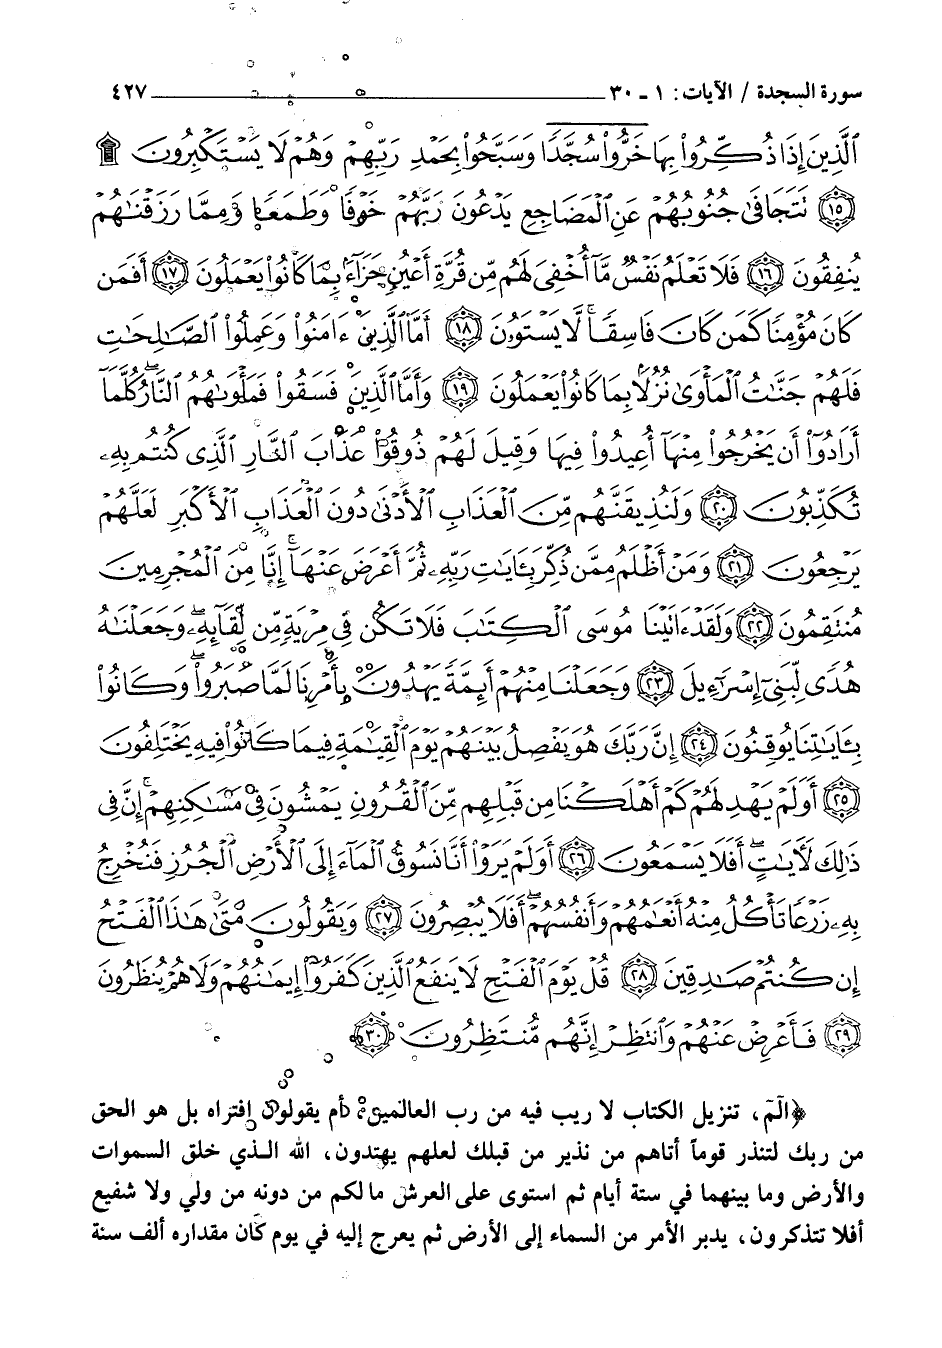 سورة السجدة / الآيات: ١ - ٣٠ ٤٢٧
ٱلَّذِينَ إِذَا ذُكِّرُوا۟ بِهَا خَرُّوا۟ سُجَّدًا وَسَبَّحُوا۟ بِحَمْدِ رَبِّهِمْ وَهُمْ لَا يَسْتَكْبِرُونَ ۩
﴿١٥﴾ تَتَجَافَىٰ جُنُوبُهُمْ عَنِ ٱلْمَضَاجِعِ يَدْعُونَ رَبَّهُمْ خَوْفًا وَطَمَعًا وَمِمَّا رَزَقْنَٰهُمْ
يُنفِقُونَ ﴿١٦﴾ فَلَا تَعْلَمُ نَفْسٌ مَّآ أُخْفِىَ لَهُم مِّن قُرَّةِ أَعْيُنٍ جَزَآءًۢ بِمَا كَانُوا۟ يَعْمَلُونَ ﴿١٧﴾ أَفَمَن
كَانَ مُؤْمِنًا كَمَن كَانَ فَاسِقًا ۚ لَّا يَسْتَوُۥنَ ﴿١٨﴾ أَمَّا ٱلَّذِينَ ءَامَنُوا۟ وَعَمِلُوا۟ ٱلصَّٰلِحَٰتِ
فَلَهُمْ جَنَّٰتُ ٱلْمَأْوَىٰ نُزُلًۢا بِمَا كَانُوا۟ يَعْمَلُونَ ﴿١٩﴾ وَأَمَّا ٱلَّذِينَ فَسَقُوا۟ فَمَأْوَىٰهُمُ ٱلنَّارُ ۖ كُلَّمَآ
أَرَادُوٓا۟ أَن يَخْرُجُوا۟ مِنْهَآ أُعِيدُوا۟ فِيهَا وَقِيلَ لَهُمْ ذُوقُوا۟ عَذَابَ ٱلنَّارِ ٱلَّذِى كُنتُم بِهِۦ
تُكَذِّبُونَ ﴿٢٠﴾ وَلَنُذِيقَنَّهُم مِّنَ ٱلْعَذَابِ ٱلْأَدْنَىٰ دُونَ ٱلْعَذَابِ ٱلْأَكْبَرِ لَعَلَّهُمْ
يَرْجِعُونَ ﴿٢١﴾ وَمَنْ أَظْلَمُ مِمَّن ذُكِّرَ بِـَٔايَٰتِ رَبِّهِۦ ثُمَّ أَعْرَضَ عَنْهَآ ۚ إِنَّا مِنَ ٱلْمُجْرِمِينَ
مُنتَقِمُونَ ﴿٢٢﴾ وَلَقَدْ ءَاتَيْنَا مُوسَى ٱلْكِتَٰبَ فَلَا تَكُن فِى مِرْيَةٍ مِّن لِّقَآئِهِۦ ۖ وَجَعَلْنَٰهُ
هُدًى لِّبَنِىٓ إِسْرَٰٓءِيلَ ﴿٢٣﴾ وَجَعَلْنَا مِنْهُمْ أَئِمَّةً يَهْدُونَ بِأَمْرِنَا لَمَّا صَبَرُوا۟ ۖ وَكَانُوا۟
بِـَٔايَٰتِنَا يُوقِنُونَ ﴿٢٤﴾ إِنَّ رَبَّكَ هُوَ يَفْصِلُ بَيْنَهُمْ يَوْمَ ٱلْقِيَٰمَةِ فِيمَا كَانُوا۟ فِيهِ يَخْتَلِفُونَ
﴿٢٥﴾ أَوَلَمْ يَهْدِ لَهُمْ كَمْ أَهْلَكْنَا مِن قَبْلِهِم مِّنَ ٱلْقُرُونِ يَمْشُونَ فِى مَسَٰكِنِهِمْ ۚ إِنَّ فِى
ذَٰلِكَ لَءَايَٰتٍ ۖ أَفَلَا يَسْمَعُونَ ﴿٢٦﴾ أَوَلَمْ يَرَوْا۟ أَنَّا نَسُوقُ ٱلْمَآءَ إِلَى ٱلْأَرْضِ ٱلْجُرُزِ فَنُخْرِجُ
بِهِۦ زَرْعًا تَأْكُلُ مِنْهُ أَنْعَٰمُهُمْ وَأَنفُسُهُمْ ۖ أَفَلَا يُبْصِرُونَ ﴿٢٧﴾ وَيَقُولُونَ مَتَىٰ هَٰذَا ٱلْفَتْحُ
إِن كُنتُمْ صَٰدِقِينَ ﴿٢٨﴾ قُلْ يَوْمَ ٱلْفَتْحِ لَا يَنفَعُ ٱلَّذِينَ كَفَرُوٓا۟ إِيمَٰنُهُمْ وَلَا هُمْ يُنظَرُونَ
﴿٢٩﴾ فَأَعْرِضْ عَنْهُمْ وَٱنتَظِرْ إِنَّهُم مُّنتَظِرُونَ ﴿٣٠﴾
﴿الٓمٓ، تنزيل الكتاب لا ريب فيه من رب العالمين، أم يقولون افتراه بل هو الحق
من ربك لتنذر قوماً أتاهم من نذير من قبلك لعلهم يهتدون، الله الذي خلق السموات
والأرض وما بينهما في ستة أيام ثم استوى على العرش ما لكم من دونه من ولي ولا شفيع
أفلا تتذكرون، يدبر الأمر من السماء إلى الأرض ثم يعرج إليه في يوم كان مقداره ألف سنة